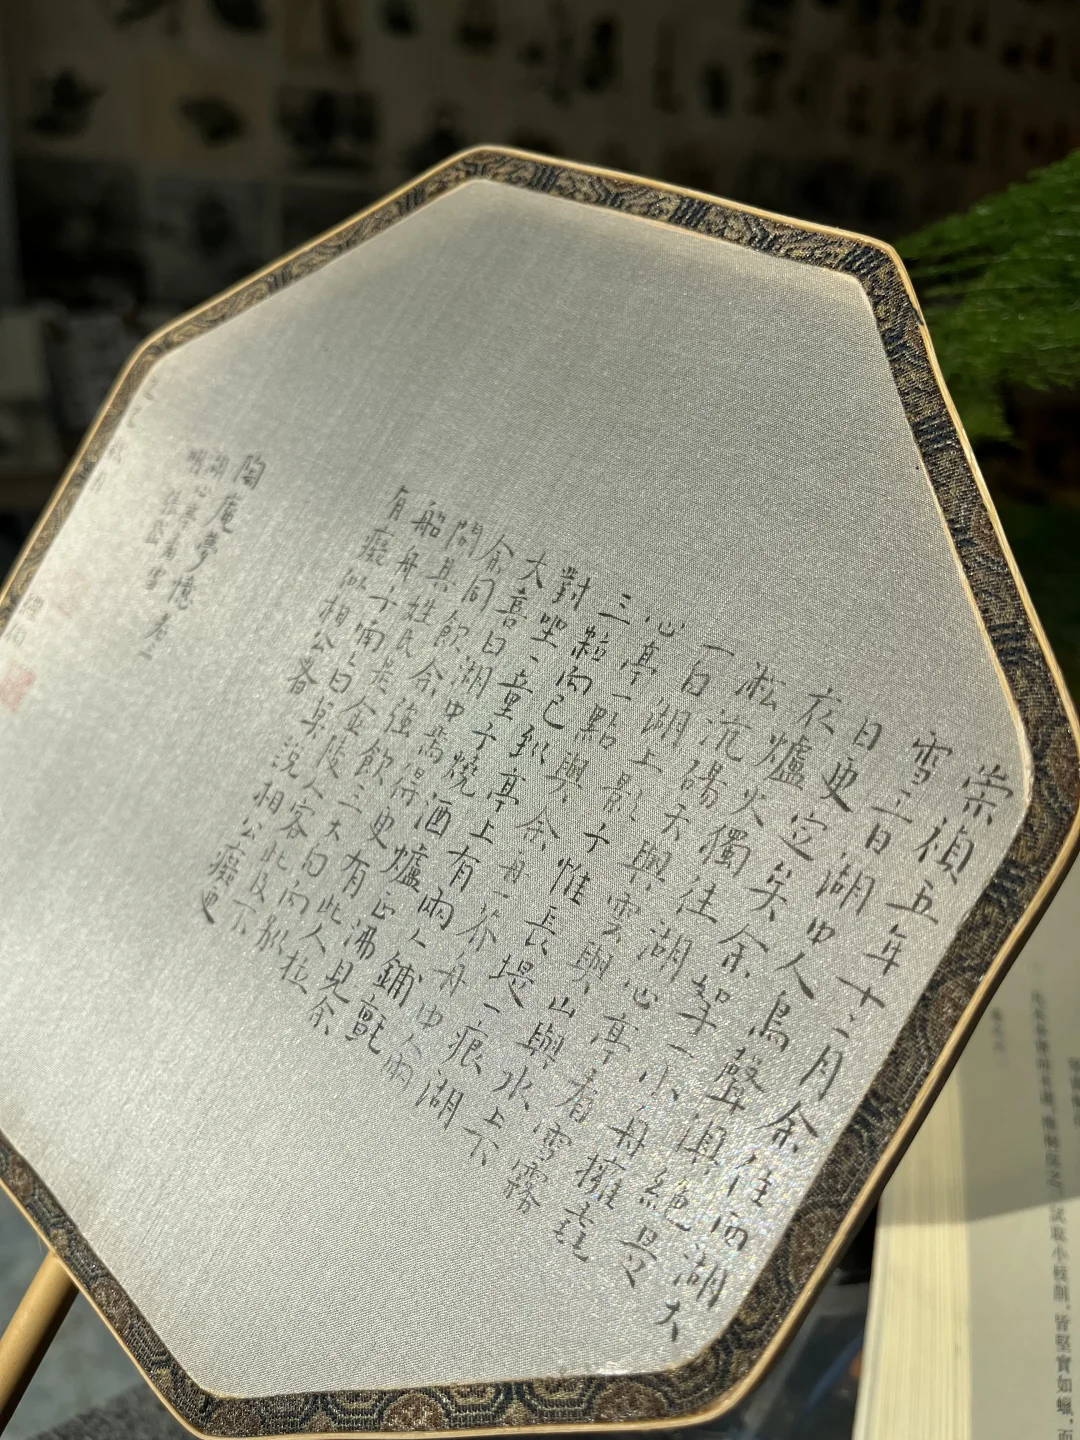 崇禎五年十二月余住西湖大
雪三日湖中人鳥聲俱絕是
日更定矣余拏一小舟擁毳
衣爐火獨往湖心亭看雪霧
淞沆碭天與雲與山與水上下
一白湖上影子惟長堤一痕湖
心亭一點與余舟一芥舟中人兩
三粒而已到亭上有兩人鋪氈
對坐一童子燒酒爐正沸見余
大喜曰湖中焉得更有此人拉
余同飲余強飲三大白而別
問其姓氏是金陵人客此及下
船舟子喃喃曰莫說相公癡更
有癡似相公者
陶庵夢憶卷三
湖心亭看雪
明張岱
試取小枝削，皆堅實如蠟，而